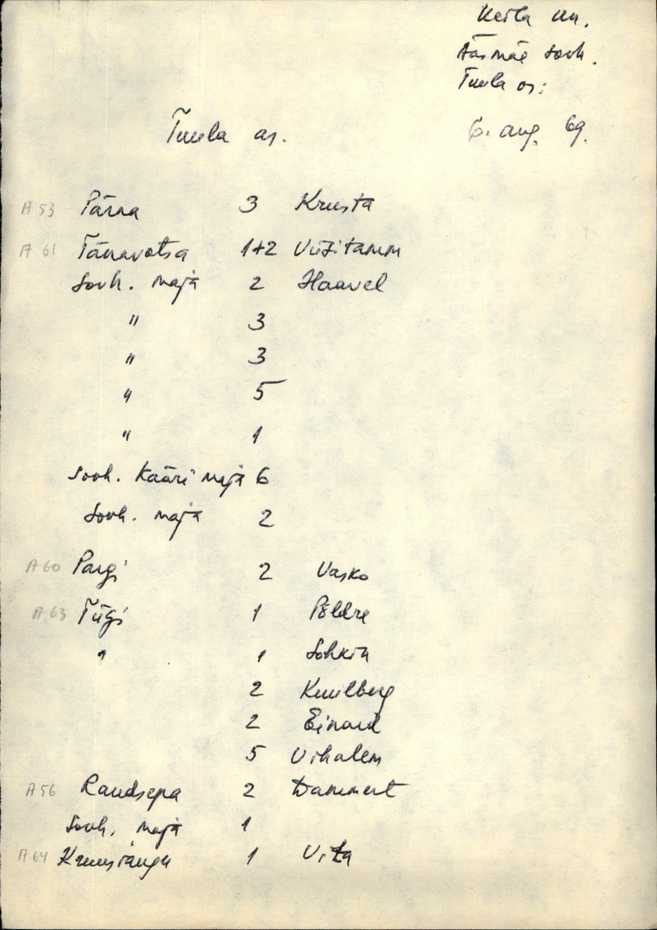 Keila kn.
Aasmäe sovh.
Tuula as:
6. aug. 69.
Tuula as.
A 53 Pärna 3 Krusta
A 61 Tänavotsa 1+2 Viisitamm
Sovh. maja 2 Haavel
" 3
" 3
" 5
" 1
Sovh. Kääri maja 6
Sovh. maja 2
A 60 Pargi 2 Vasko
A 63 Tiigi 1 Põldre
" 1 Sohkin
2 Kuulberg
2 Einard
5 Vihalem
A 56 Raudsepa 2 Dammert
Sovh. maja 1
A 64 1 Vita